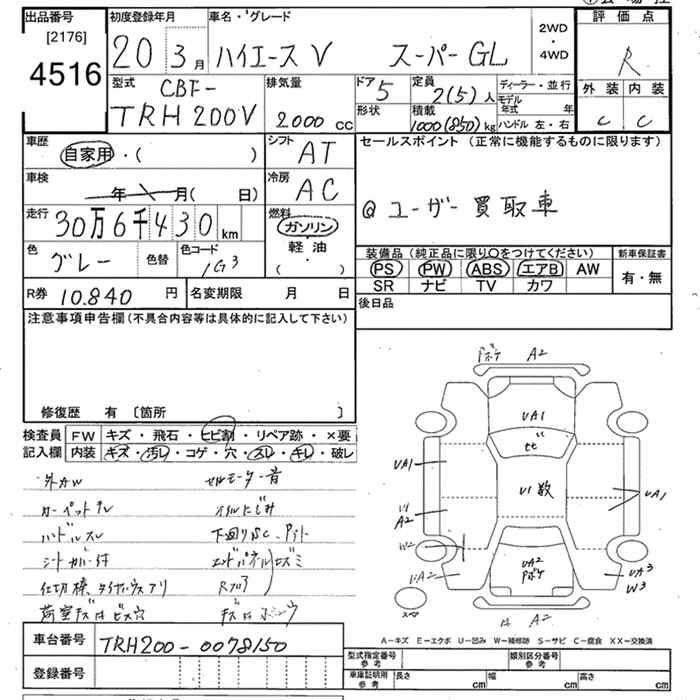 出品番号
[2176]
4516
初度登録年月
20 3月
車名・グレード
ハイエースV スーパーGL
2WD
・
4WD
評価点
R
外装 内装
C C
型式
CBF-
TRH200V
排気量
2000 cc
ドア 5
形状
定員
2(5)人
積載
1000(850)kg
ディーラー・並行
モデル
年式 年
ハンドル 左・右
車歴
自家用・( )
シフト
AT
車検
年 月( 日)
冷房
AC
走行
30万6千430km
燃料
ガソリン
軽油
( ・ )
色
グレー
色替
色コード
1G3
セールスポイント (正常に機能するものに限ります)
@ユーザー買取車
装備品 (純正品に限り○をつけてください)
PS PW ABS エアB AW
SR ナビ TV カワ
新車保証書
有・無
R券 10.840 円
名変期限 月 日
後日品
注意事項申告欄 (不具合内容等は具体的に記入して下さい)
修復歴 有 〔箇所 〕
検査員
記入欄
FW キズ・飛石・ヒビ割・リペア跡・×要
内装 キズ・汚レ・コゲ・穴・スレ・キレ・破レ
外AW
セルモーター音
カーペットスレ
オイルにじみ
ハンドルスレ
下回りSC、
シートカバー付
エンドパネル
仕切棒、タイヤハウスアリ
Rフロア
荷室キズ ビス穴
ボケ A2
UA1
ヒビ
UA1
U1数
UA1
A2
UA2
UA2
Pボケ
UA3
W3
A2
スペア
A−キズ E−エクボ U−凹み W−補修跡 S−サビ C−腐食 XX−交換済
車台番号 TRH200-0078150
登録番号
型式指定番号
参考
類別区分番号
参考
車庫証明用
参考
長さ cm
幅 cm
高さ cm